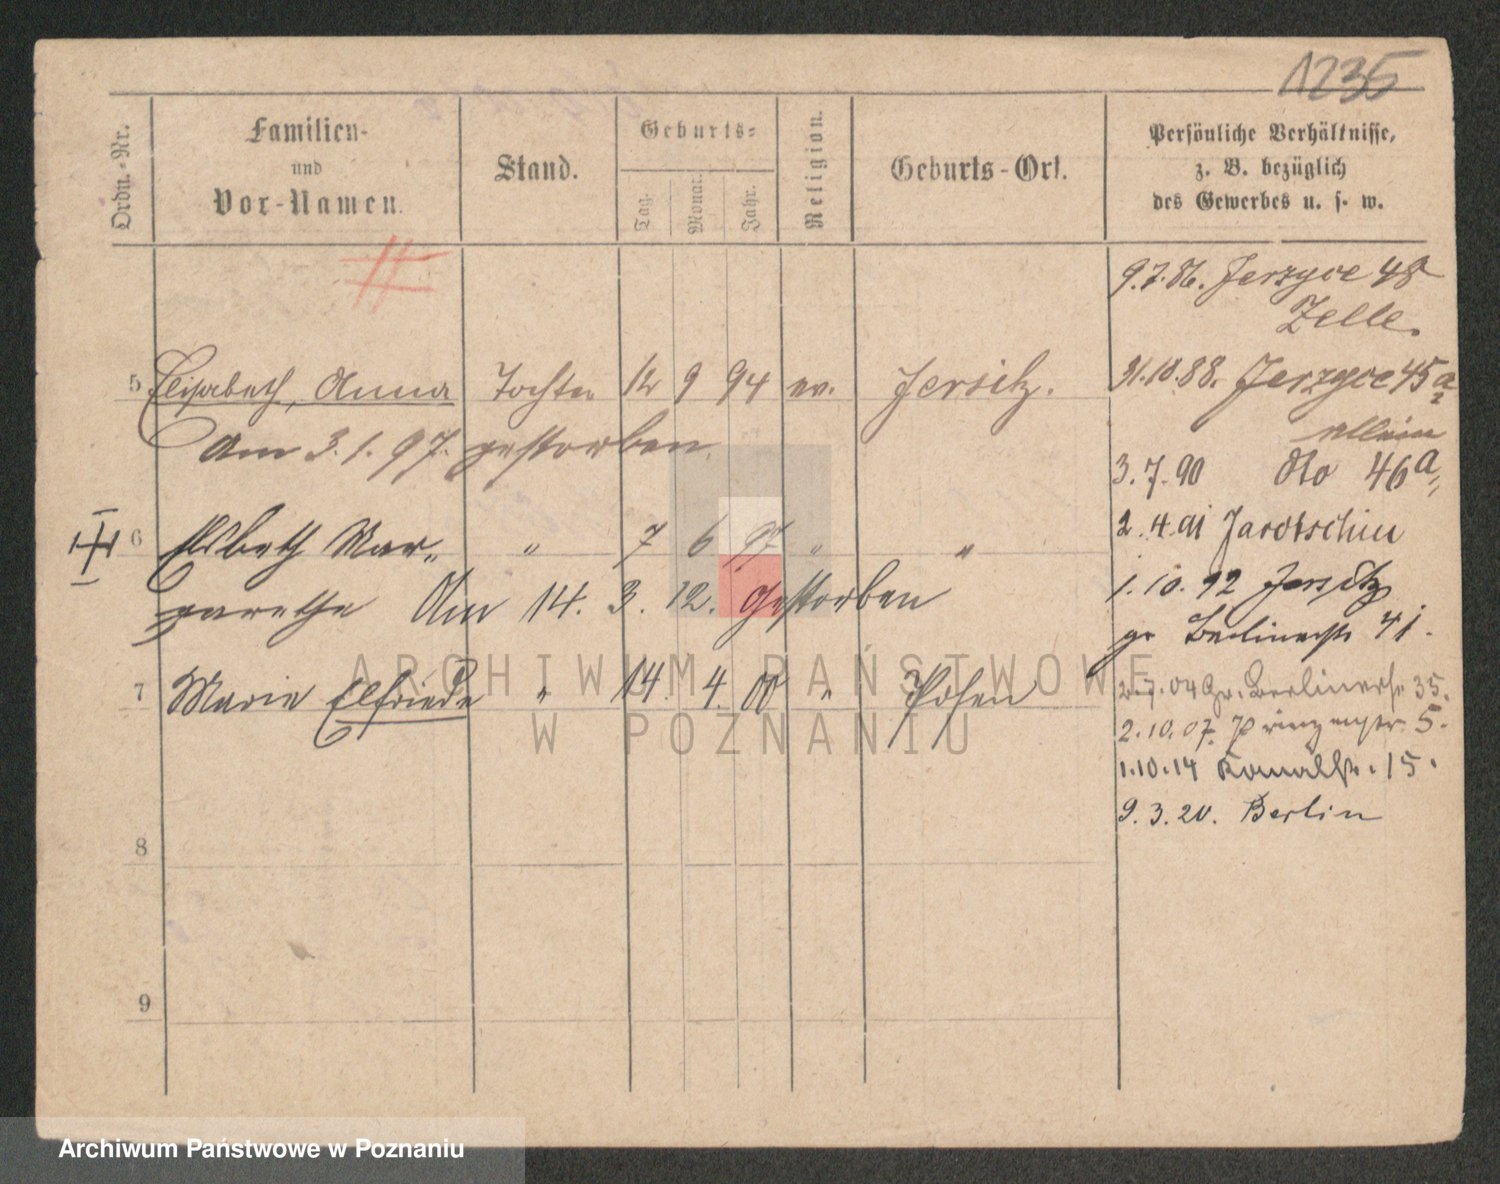 1235
Ordn.-Nr.
Familien-
und
Vor-Namen.
Stand.
Geburts-
Tag.
Monat.
Jahr.
Religion.
Geburts-Ort.
Persönliche Verhältnisse,
z. B. bezüglich
des Gewerbes u. s. w.
9.7.86. Jerzyce 48
Zelle.
5 Elisabeth, Anna Tochter 12 9 94 ev. Jersitz.
31.10.88. Jerzyce 45a
Am 3.1.97. gestorben.
allein
3.7.90 dto 46a
6 Elsbeth Mar- " 7 6 97 " "
2.4.91 Jarotschin
garethe Am 14. 3. 12. gestorben
1.10.92 Jersitz
gr Berlinerstr 41.
7 Marie Elfriede " 14. 4. 00 " Posen
2.7.04 Gr. Berlinerstr 35.
2.10.07. Prinzenstr. 5.
1.10.14 Kanalstr. 15.
9.3.20. Berlin
8
9
ARCHIWUM PAŃSTWOWE
W POZNANIU
Archiwum Państwowe w Poznaniu